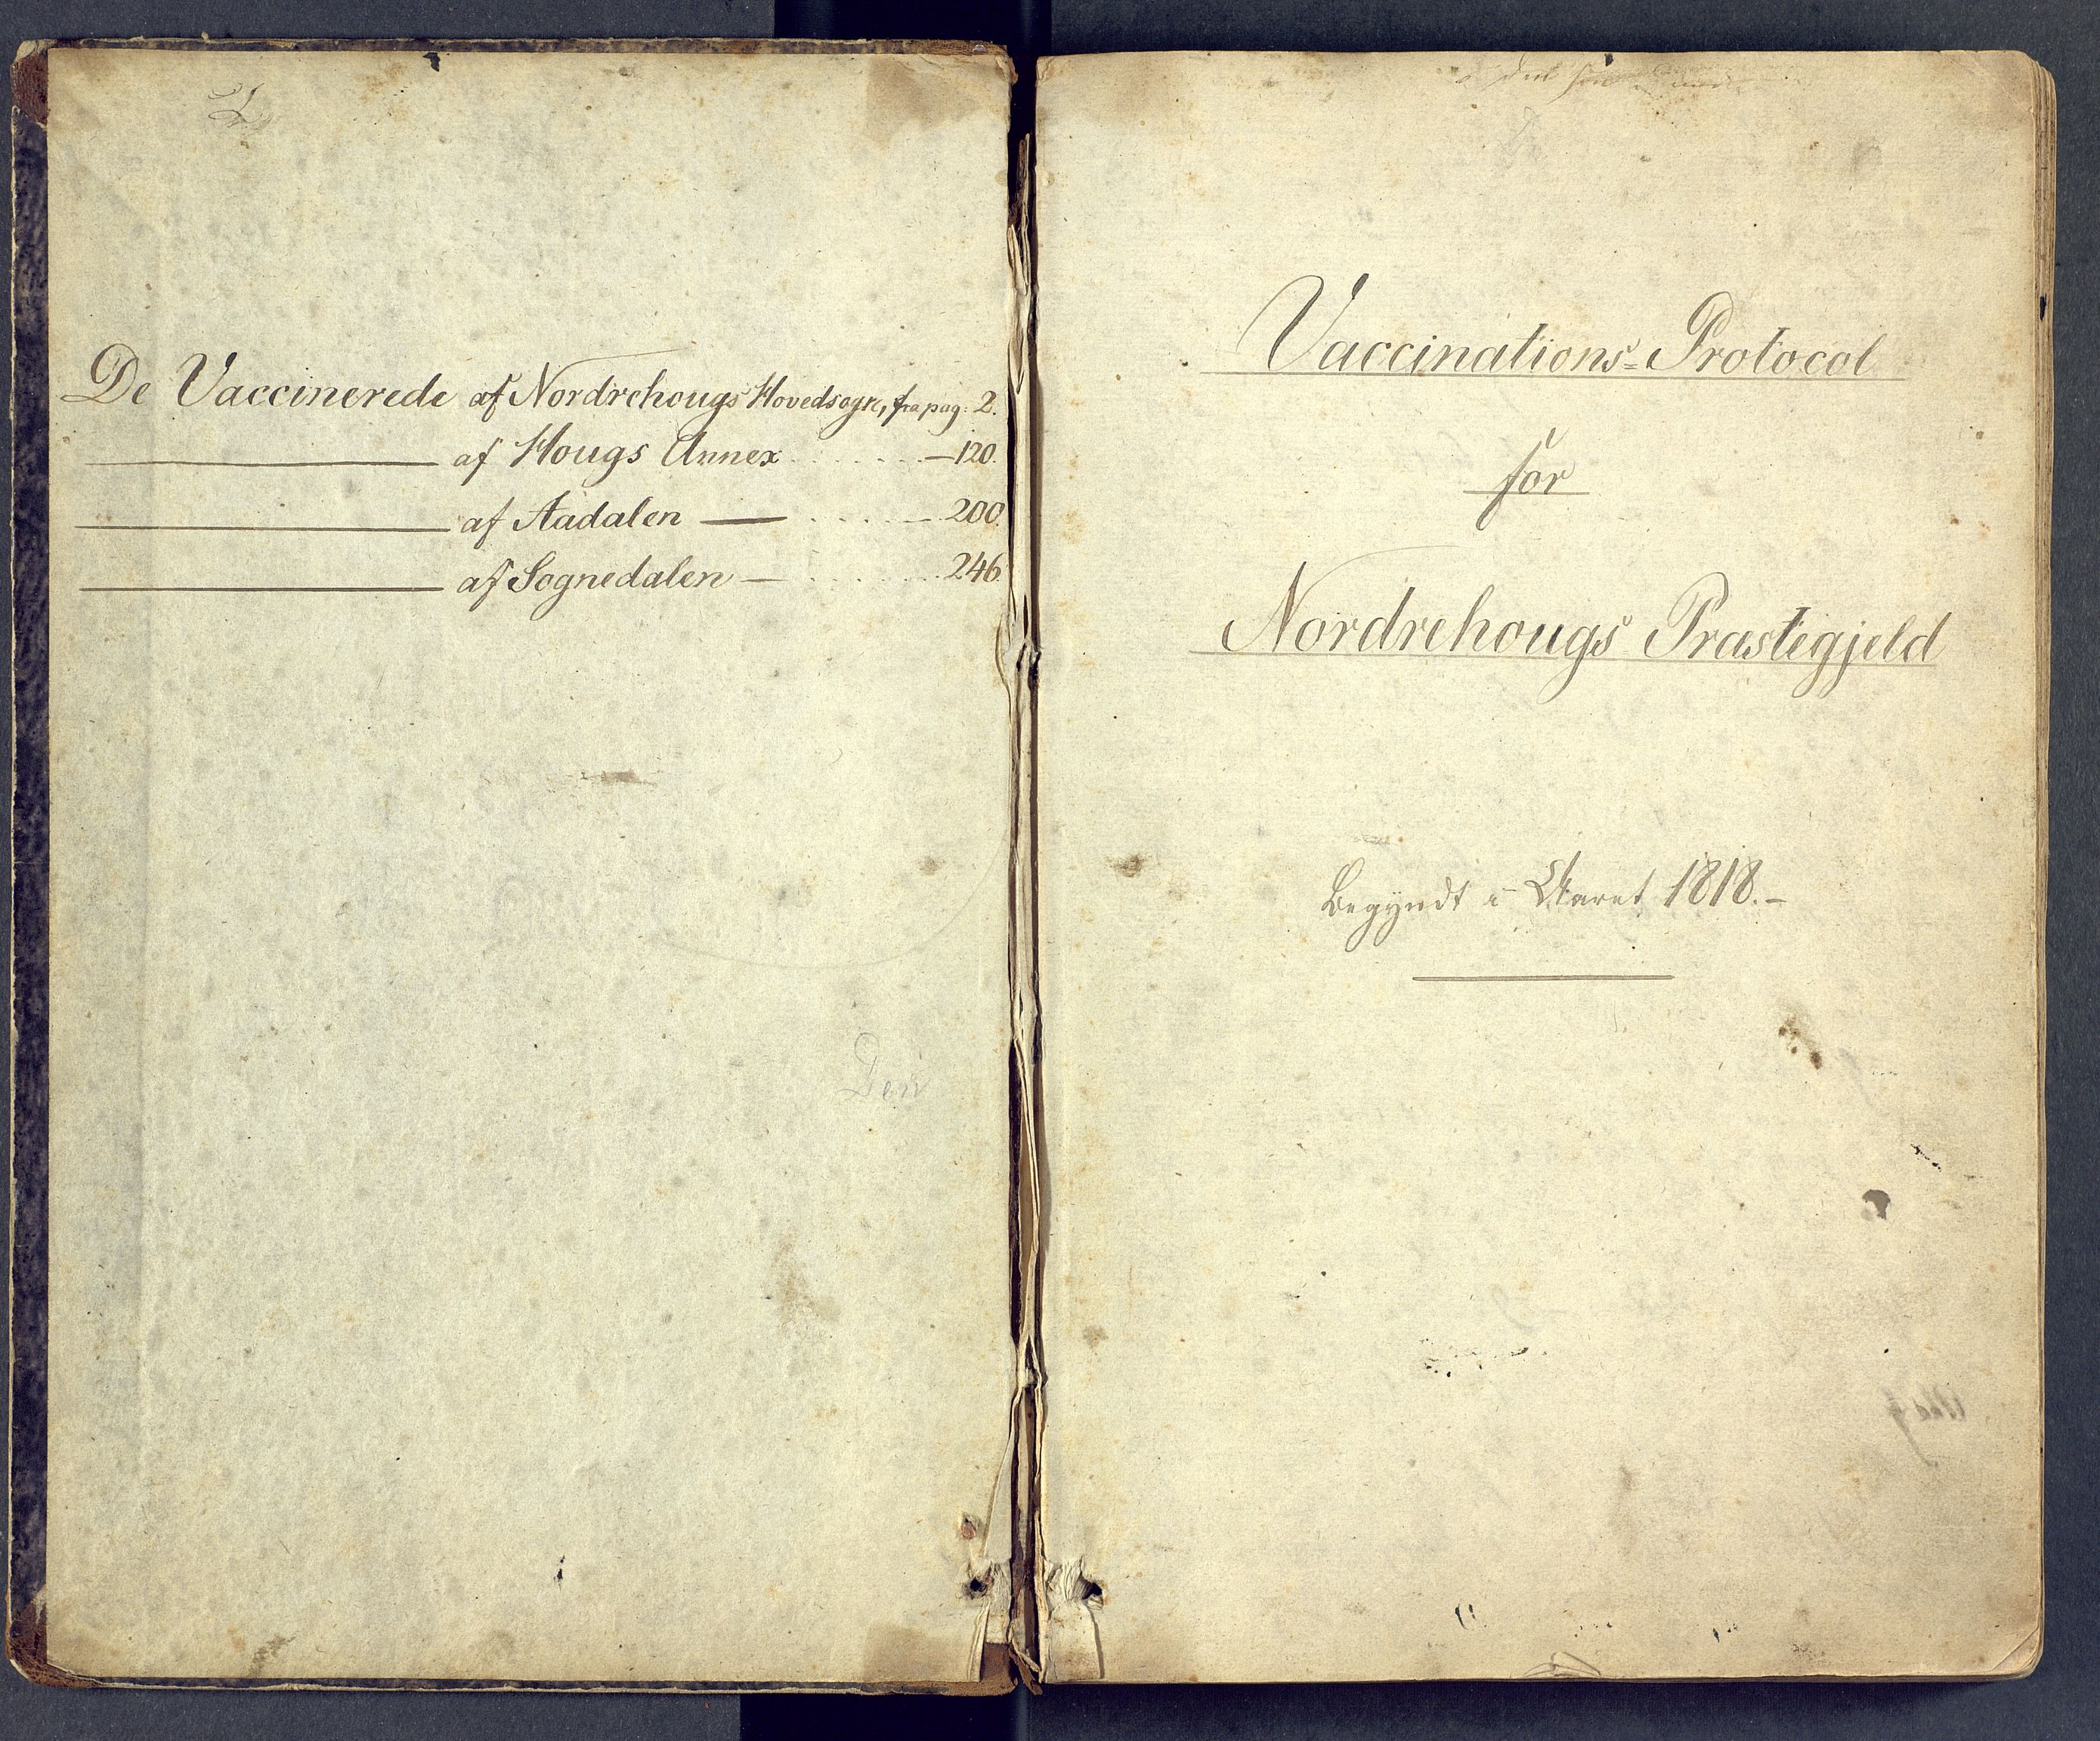 De Vaccinerede af Nordrehougs Hovedsogn, fra pag: 2.
af Hougs Annex . . . . . . — 120.
af Aadalen — . . . . — 200.
af Sognedalen — . . . . . . . 246.
Den
Vaccinations=Protocol
for
Nordrehougs Præstegjeld
Begyndt i Aaret 1818.–